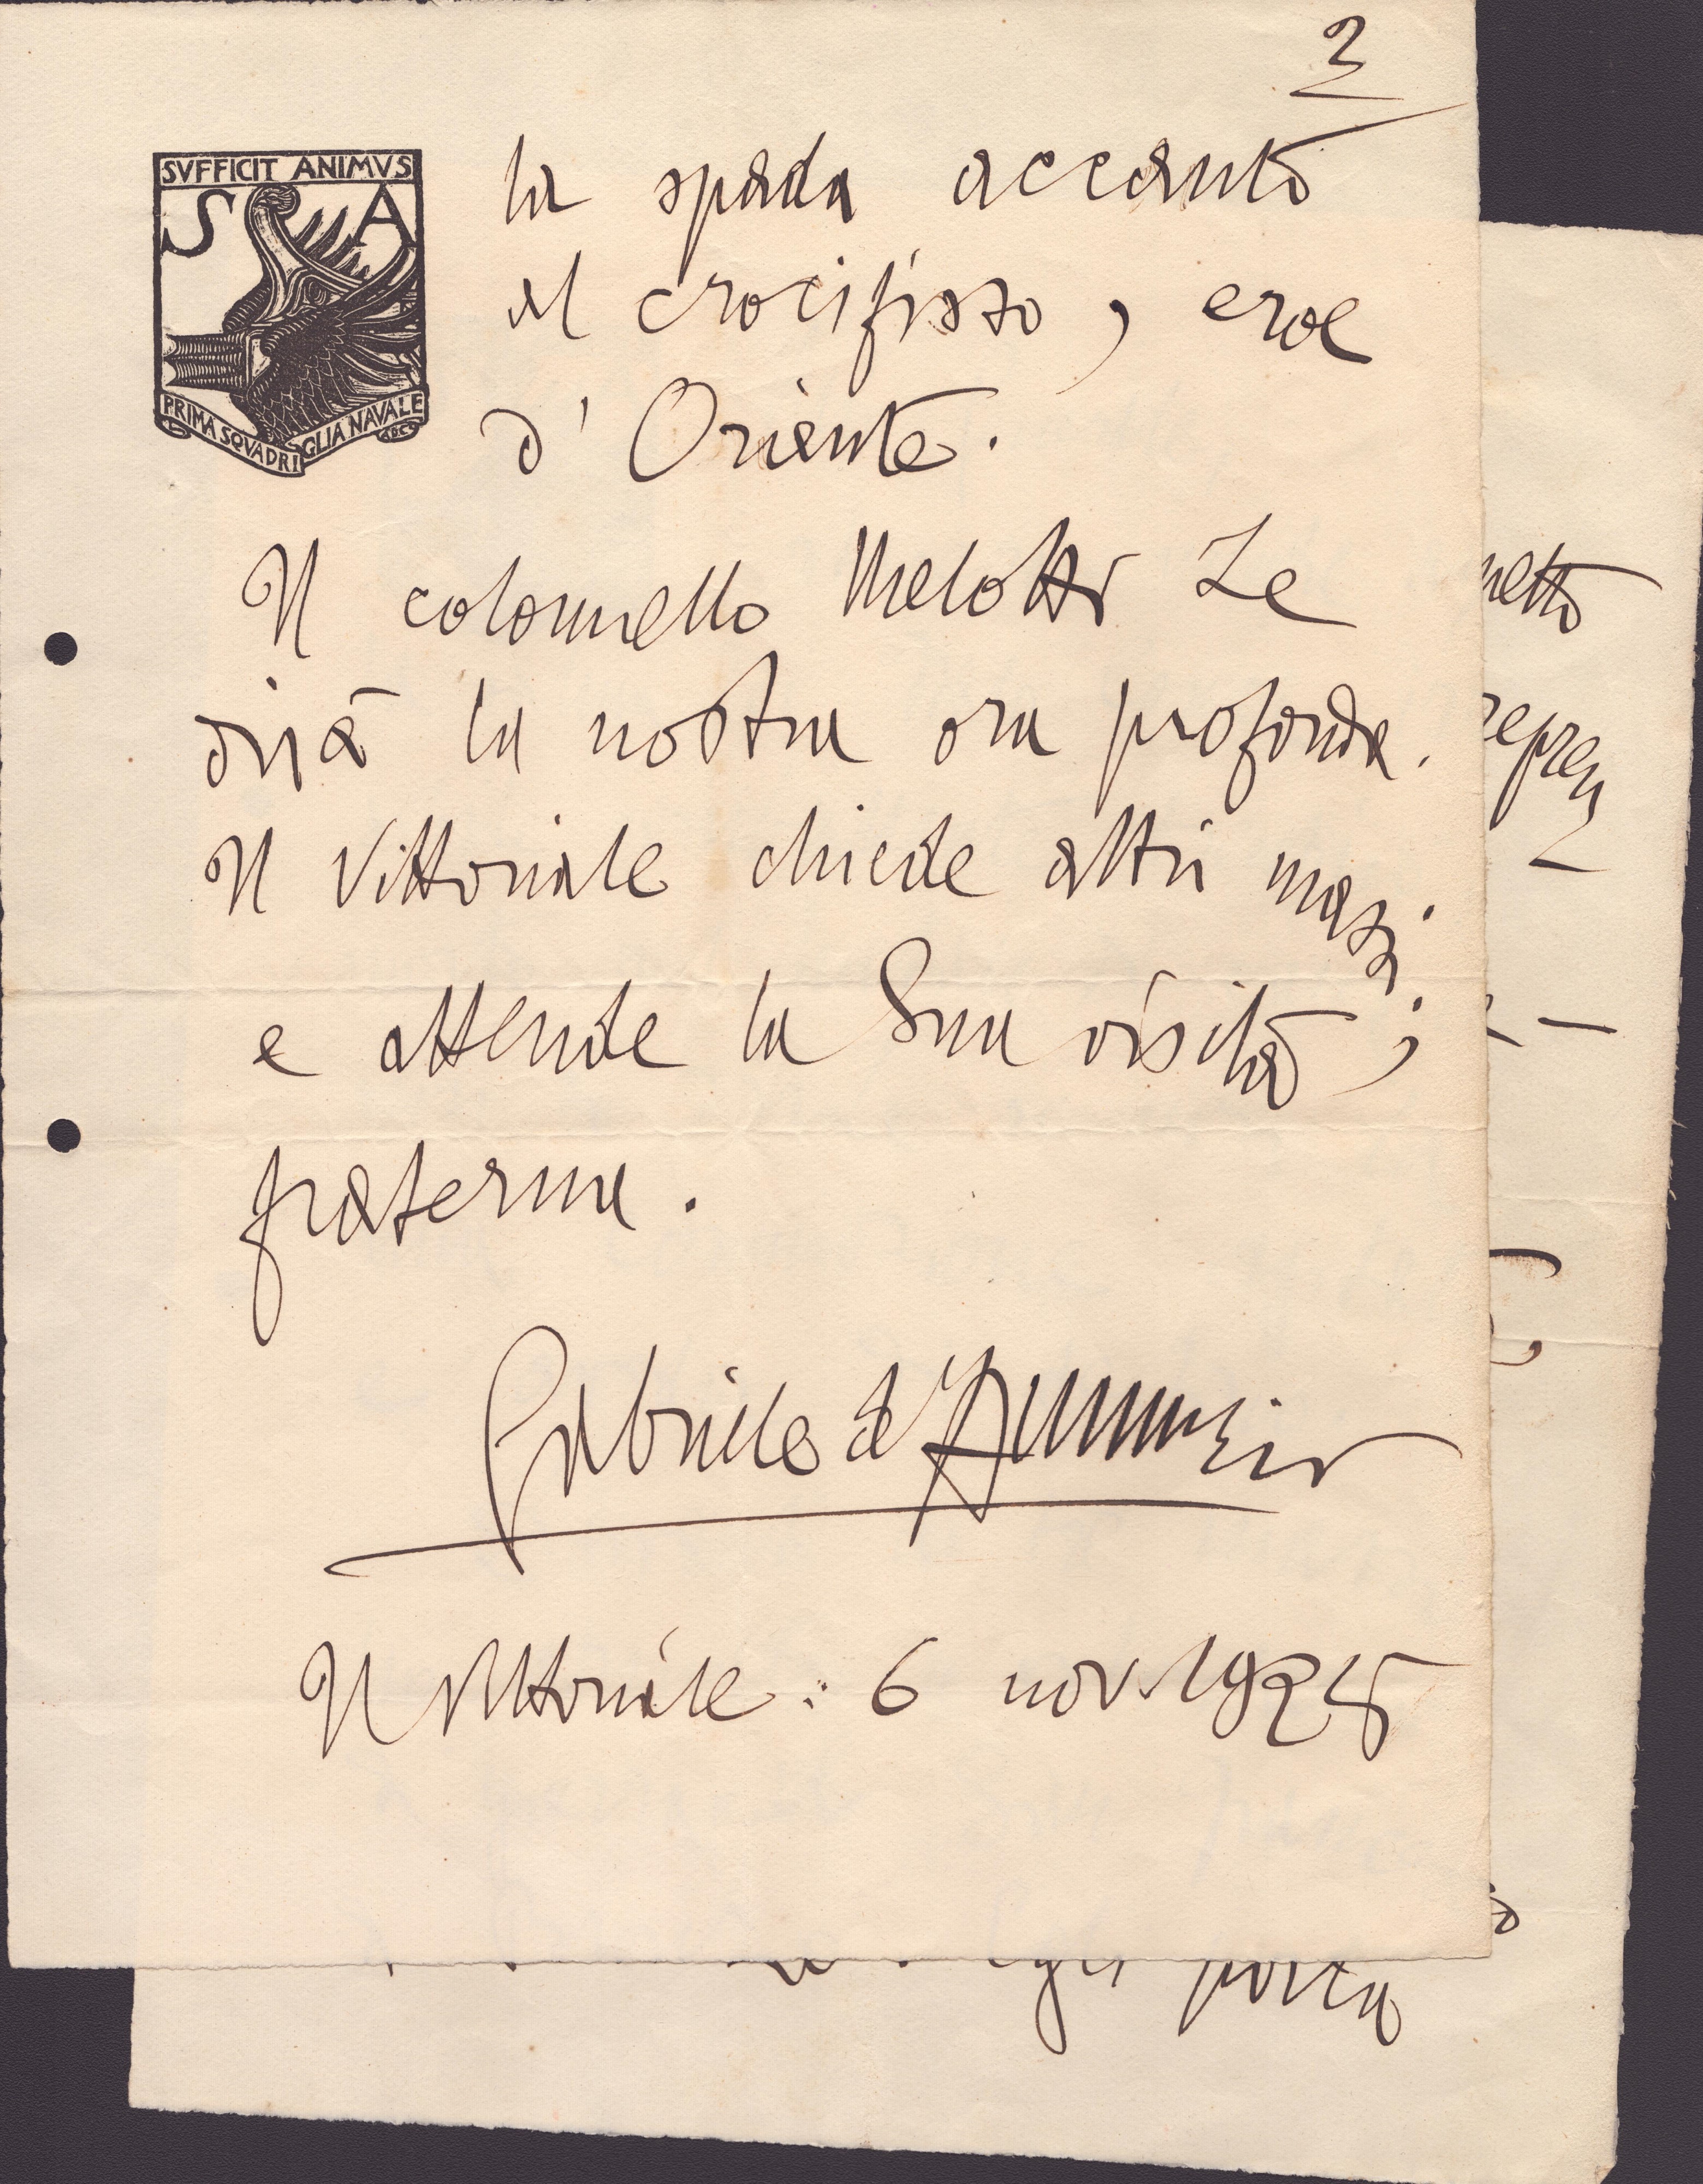 2
SVFFICIT ANIMVS
S A
PRIMA SQVADRIGLIA NAVALE
la spada accanto
al crocifisso, eroe
d' Oriente.
Il colonnello Melotti Le
dirà la nostra ora profonda.
Il Vittoriale chiede altri massi
e attende la Sua visita,
fraterna.
Gabriele d'Annunzio
Il Vittoriale: 6 nov. 1925
netto
porta